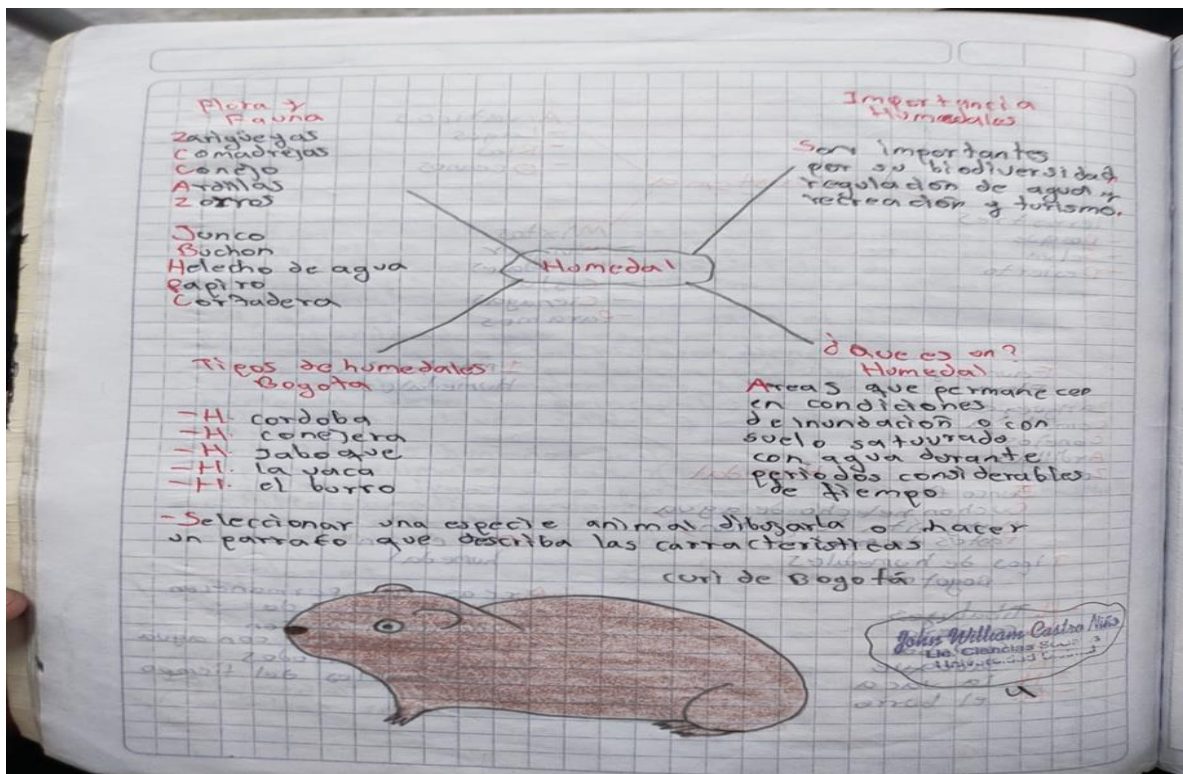 Flora y
Fauna
Zarigueyas
Comadrejas
Conejo
Ardillas
Zorros
Junco
Buchon
Helecho de agua
Papiro
Cortadera
Importancia
Humedales
Son importantes
por su biodiversidad,
regulación de agua y
recreación y turismo.
Humedal
Tipos de humedales
Bogota
-H. cordoba
-H. conejera
-H. Jaboque
-H. la vaca
-H. el burro
¿Que es un?
Humedal
Areas que permanecen
en condiciones
de inundación o con
suelo satuurado
con agua durante
periodos considerables
de tiempo
-Seleccionar una especie animal dibujarla o hacer
un parrafo que describa las carracteristicas
curi de Bogotá
John William Castro Niño
Lic. Ciencias